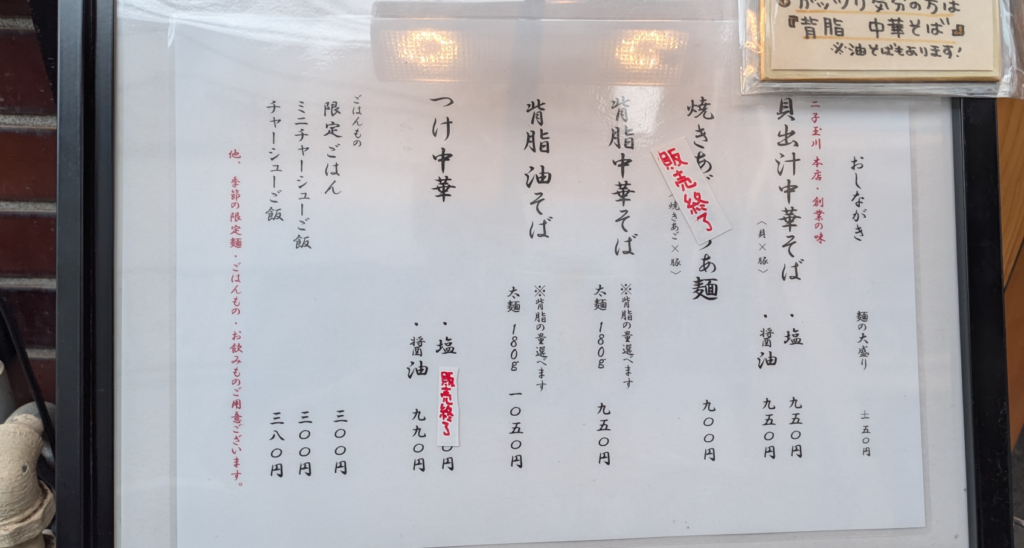 ガッツリ気分の方は
『背脂 中華そば』
※油そばもあります!
おしながき 麺の大盛り 五〇円
二子玉川 本店・創業の味
貝出汁中華そば ・塩 九五〇円
〈貝×豚〉 ・醤油 九五〇円
焼きあ ぁ麺 九〇〇円
販売終了
焼きあご×豚〉
背脂中華そば
※背脂の量選べます
太麺 180g 九五〇円
背脂 油そば
※背脂の量選べます
太麺 180g 一〇五〇円
つけ中華
・塩 〇円
販売終了
・醤油 九九〇円
ごはんもの
限定ごはん 三〇〇円
ミニチャーシューご飯 三〇〇円
チャーシューご飯 三八〇円
他、季節の限定麺・ごはんもの・お飲みものご用意ございます。